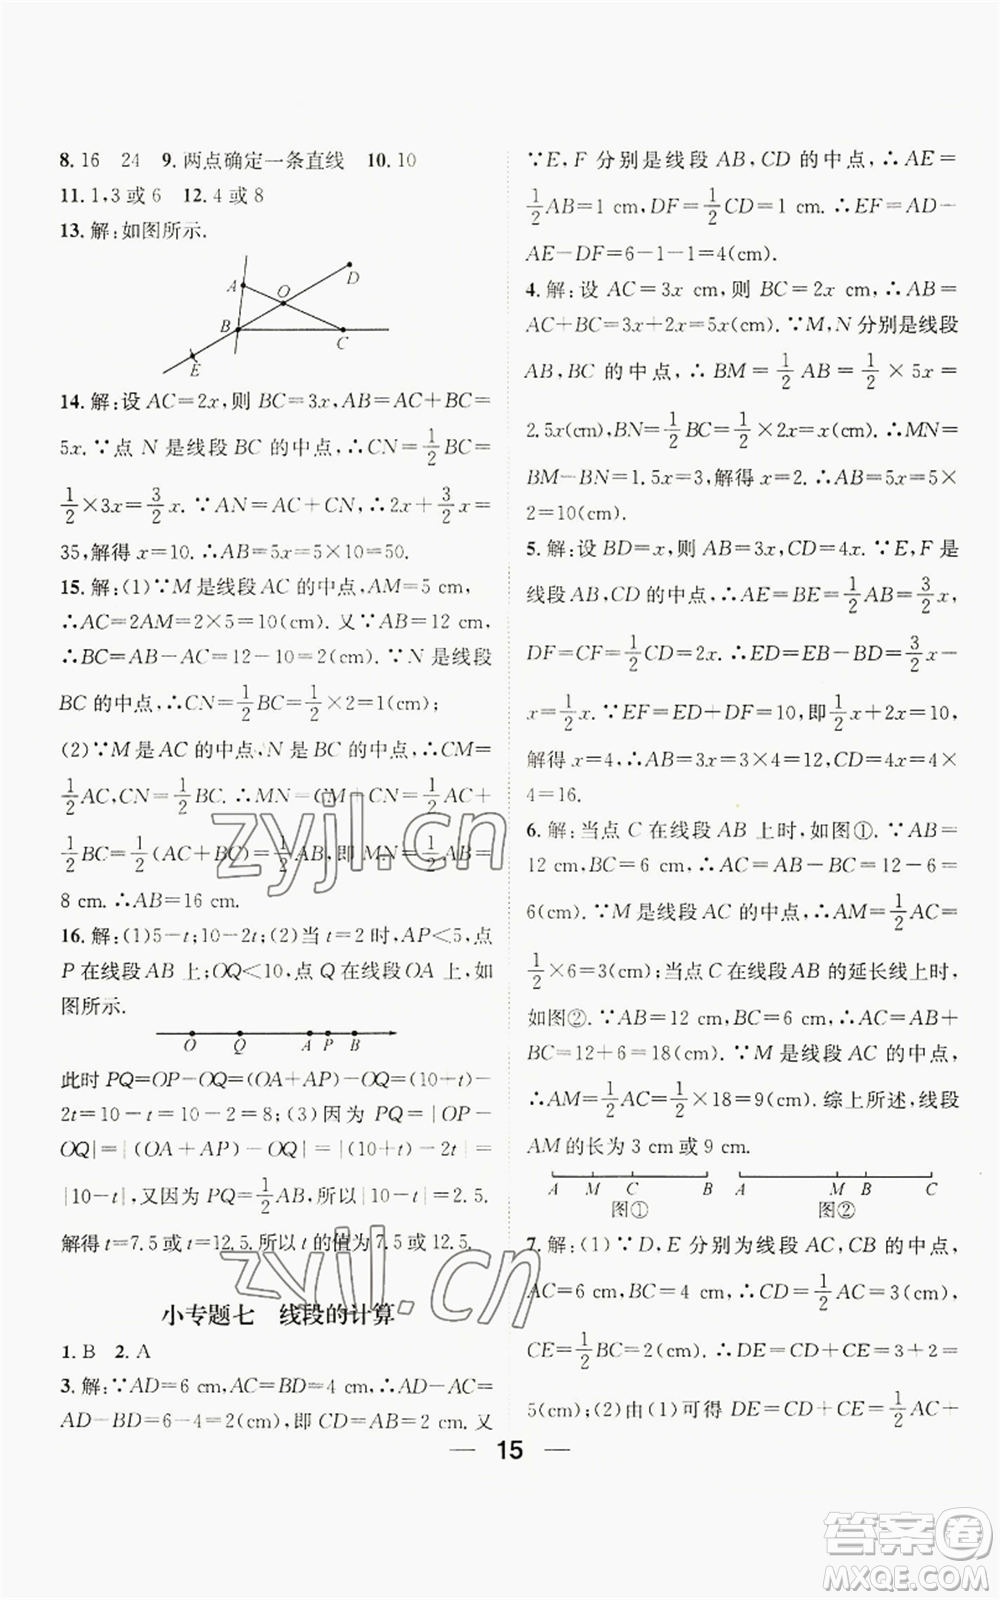 8. 16　24　9. 两点确定一条直线　10. 10
11. 1,3 或 6　12. 4 或 8
13. 解:如图所示.
A
O
D
B
C
E
14. 解:设 AC=2x,则 BC=3x,AB=AC+BC=
5x. ∵点 N 是线段 BC 的中点,∴CN=1/2BC=
1/2×3x=3/2x. ∵AN=AC+CN,∴2x+3/2x=
35,解得 x=10. ∴AB=5x=5×10=50.
15. 解:(1)∵M 是线段 AC 的中点,AM=5 cm,
∴AC=2AM=2×5=10(cm). 又∵AB=12 cm,
∴BC=AB-AC=12-10=2(cm). ∵N 是线段
BC 的中点,∴CN=1/2BC=1/2×2=1(cm);
(2)∵M 是 AC 的中点,N 是 BC 的中点,∴CM=
1/2AC,CN=1/2BC. ∴MN=CM+CN=1/2AC+
1/2BC=1/2(AC+BC)=1/2AB,即 MN=1/2AB=
8 cm. ∴AB=16 cm.
16. 解:(1)5-t;10-2t;(2)当 t=2 时,AP<5,点
P 在线段 AB 上;OQ<10,点 Q 在线段 OA 上,如
图所示.
O Q A P B
此时 PQ=OP-OQ=(OA+AP)-OQ=(10+t)-
2t=10-t=10-2=8;(3)因为 PQ=|OP-
OQ|=|(OA+AP)-OQ|=|(10+t)-2t|=
|10-t|,又因为 PQ=1/2AB,所以|10-t|=2.5.
解得 t=7.5 或 t=12.5. 所以 t 的值为 7.5 或 12.5.
小专题七　线段的计算
1. B　2. A
3. 解:∵AD=6 cm,AC=BD=4 cm,∴AD-AC=
AD-BD=6-4=2(cm),即 CD=AB=2 cm. 又
∵E,F 分别是线段 AB,CD 的中点,∴AE=
1/2AB=1 cm,DF=1/2CD=1 cm. ∴EF=AD-
AE-DF=6-1-1=4(cm).
4. 解:设 AC=3x cm,则 BC=2x cm,∴AB=
AC+BC=3x+2x=5x(cm). ∵M,N 分别是线段
AB,BC 的中点,∴BM=1/2AB=1/2×5x=
2.5x(cm),BN=1/2BC=1/2×2x=x(cm). ∴MN=
BM-BN=1.5x=3,解得 x=2. ∴AB=5x=5×
2=10(cm).
5. 解:设 BD=x,则 AB=3x,CD=4x. ∵E,F 是
线段 AB,CD 的中点,∴AE=BE=1/2AB=3/2x,
DF=CF=1/2CD=2x. ∴ED=EB-BD=3/2x-
x=1/2x. ∵EF=ED+DF=10,即1/2x+2x=10,
解得 x=4,∴AB=3x=3×4=12,CD=4x=4×
4=16.
6. 解:当点 C 在线段 AB 上时,如图①. ∵AB=
12 cm,BC=6 cm,∴AC=AB-BC=12-6=
6(cm). ∵M 是线段 AC 的中点,∴AM=1/2AC=
1/2×6=3(cm);当点 C 在线段 AB 的延长线上时,
如图②. ∵AB=12 cm,BC=6 cm,∴AC=AB+
BC=12+6=18(cm). ∵M 是线段 AC 的中点,
∴AM=1/2AC=1/2×18=9(cm). 综上所述,线段
AM 的长为 3 cm 或 9 cm.
A M C B　A M B C
图①　图②
7. 解:(1)∵D,E 分别为线段 AC,CB 的中点,
AC=6 cm,BC=4 cm,∴CD=1/2AC=3(cm),
CE=1/2BC=2(cm). ∴DE=CD+CE=3+2=
5(cm);(2)由(1)可得 DE=CD+CE=1/2AC+
— 15 —
zyjl.cn
zyjl.cn
答案卷
MXQE.COM